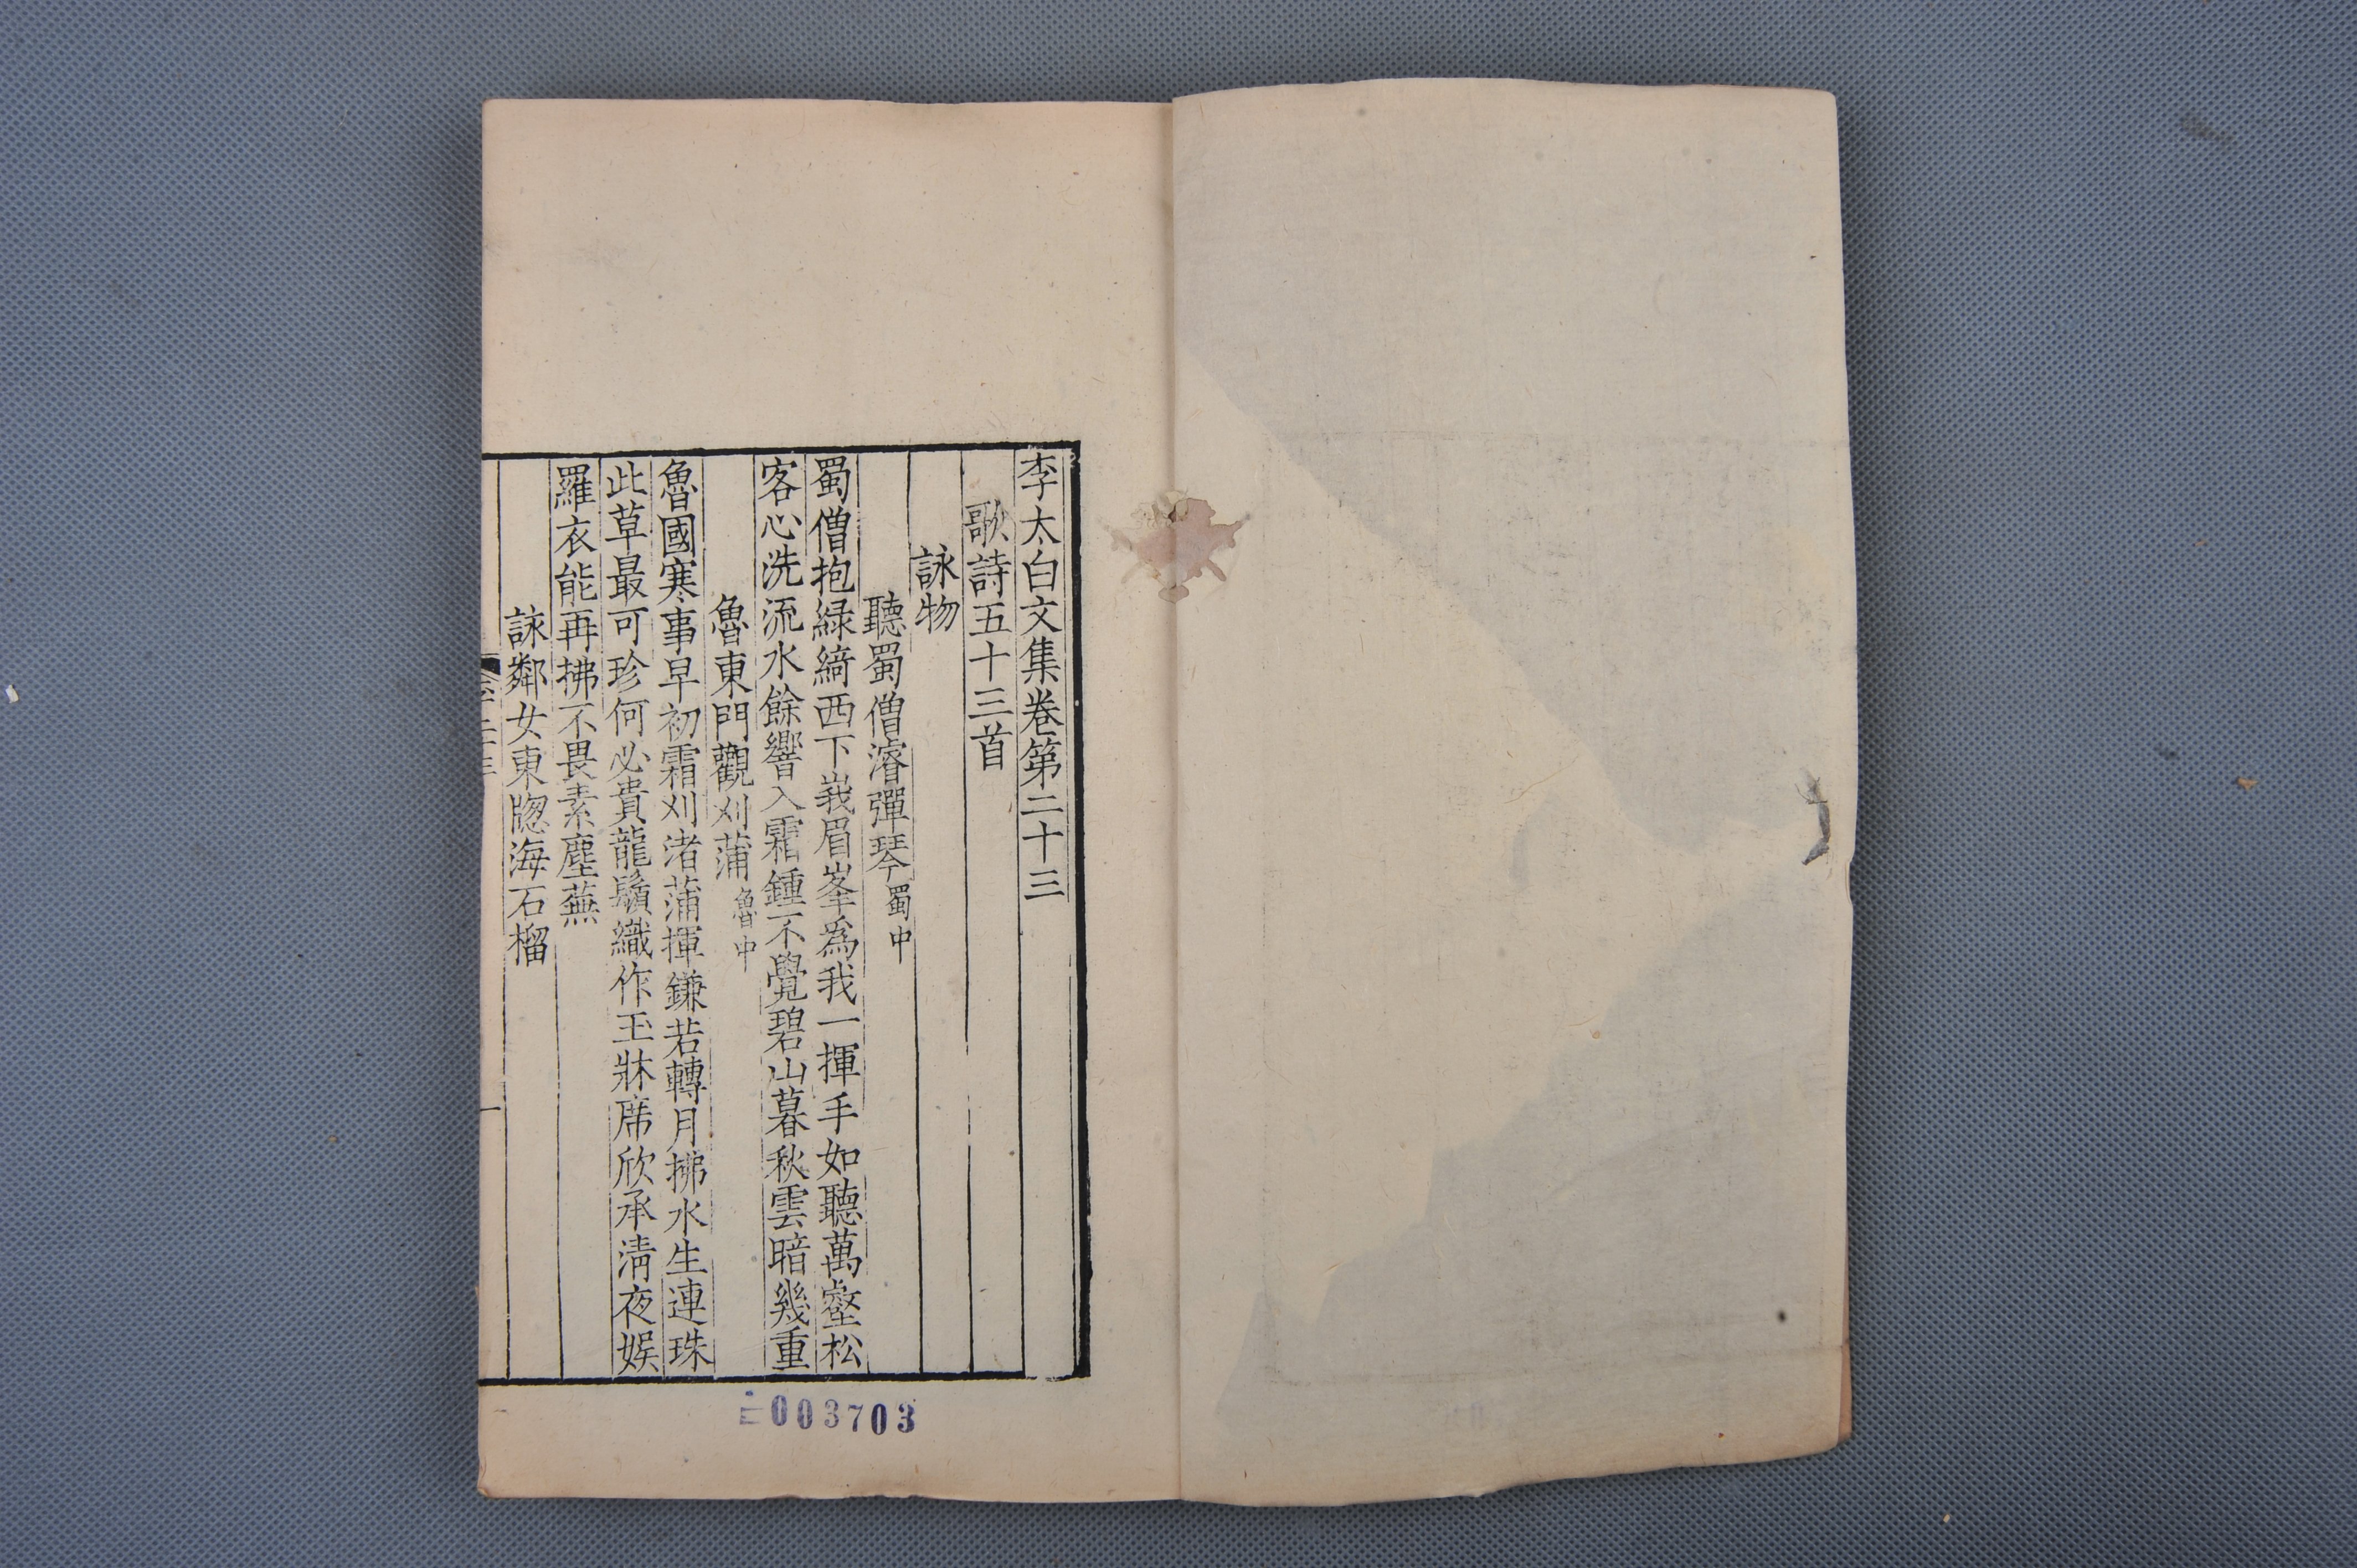 李太白文集卷第二十三
歌詩五十三首
詠物
聽蜀僧濬彈琴蜀中
蜀僧抱綠綺西下峩眉峯爲我一揮手如聽萬壑松
客心洗流水餘響入霜鍾不覺碧山暮秋雲暗幾重
魯東門觀刈蒲魯中
魯國寒事早初霜刈渚蒲揮鎌若轉月拂水生連珠
此草最可珍何必貴龍鬚織作玉牀席欣承清夜娛
羅衣能再拂不畏素塵蕪
詠鄰女東牎海石榴
一
003703